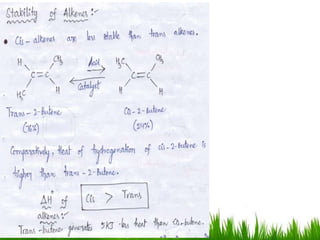 Stability of Alkenes :-
• Cis - alkenes are less stable than trans alkenes.
H CH₃ Acid H₃C CH₃
C = C C = C
H₃C H Catalyst H H
Trans - 2 - butene Cis - 2 - butene
(76%) (24%)
Comparatively, heat of hydrogenation of cis - 2 - butene is
higher than trans - 2 - butene.
ΔH° of Cis > Trans
alkenes :-
Trans - butene generates 5 KJ less heat than cis - butene.